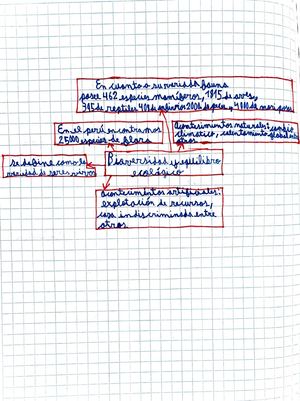 En cuanto a su variada fauna
posee 462 especies mamíferos, 1815 de aves,
395 de reptiles 408 de anfibios 2000 de peces, y 4000 de mariposas
En el perú encontramos
25000 especies de flora
Acontecimientos naturales: cambio
climático, calentamiento global entre
otros
se define como la
variedad de seres vivos
Biodiversidad y equilibrio
ecológico
Acontecimientos artificiales:
explotación de recursos,
caza indiscriminada entre
otros